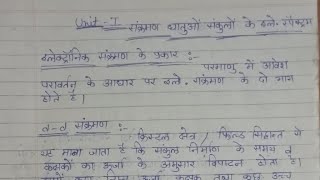 Unit - I
संक्रमण धातुओं संकुलों के इले. स्पेक्ट्रम
इलेक्ट्रोनिक संक्रमण के प्रकार :-
परमाणु में आवेश
परावर्तन के आधार पर इले. संक्रमण के दो भाग
होते है।
d-d संक्रमण :- क्रिस्टल क्षेत्र / फिल्ड सिद्धान्त से
यह माना जाता है कि संकुल निर्माण के समय d
कक्षकों का ऊर्जा के अनुसार विपाटन होता है।
ऊर्जा कक्षक तथा कुछ उच्च